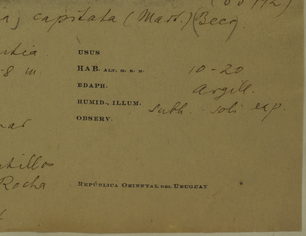 capitata (Mart.) Becc.
USUS
8 m
HAB. ALT. M. S. M. 10-20
EDAPH. Argill.
HUMID., ILLUM. subh. soli exp.
OBSERV.
Rocha
REPÚBLICA ORIENTAL DEL URUGUAY